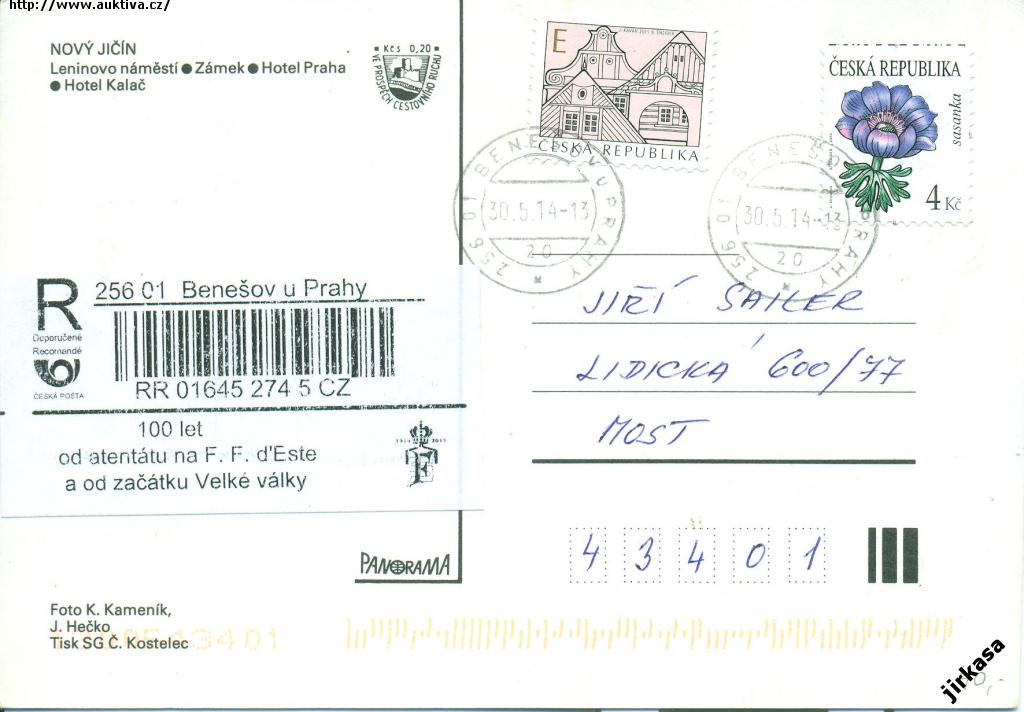 http://www.auktiva.cz/
NOVÝ JIČÍN
Leninovo náměstí ● Zámek ● Hotel Praha
● Hotel Kalač
Kčs 0,20
VE PROSPĚCH CESTOVNÍHO RUCHU
E
ČESKÁ REPUBLIKA
ČESKÁ REPUBLIKA
sasanka
4 Kč
256 01 BENEŠOV U PRAHY
30.5.14-13
20
256 01 BENEŠOV U PRAHY
30.5.14-13
20
R
Doporučené
Recomandé
ČESKÁ POŠTA
256 01 Benešov u Prahy
RR 01645 274 5 CZ
100 let
od atentátu na F. F. d'Este
a od začátku Velké války
JIŘÍ SAILER
LIDICKÁ 600/77
MOST
43401
PANORAMA
Foto K. Kameník,
J. Hečko
Tisk SG Č. Kostelec
jirkasa